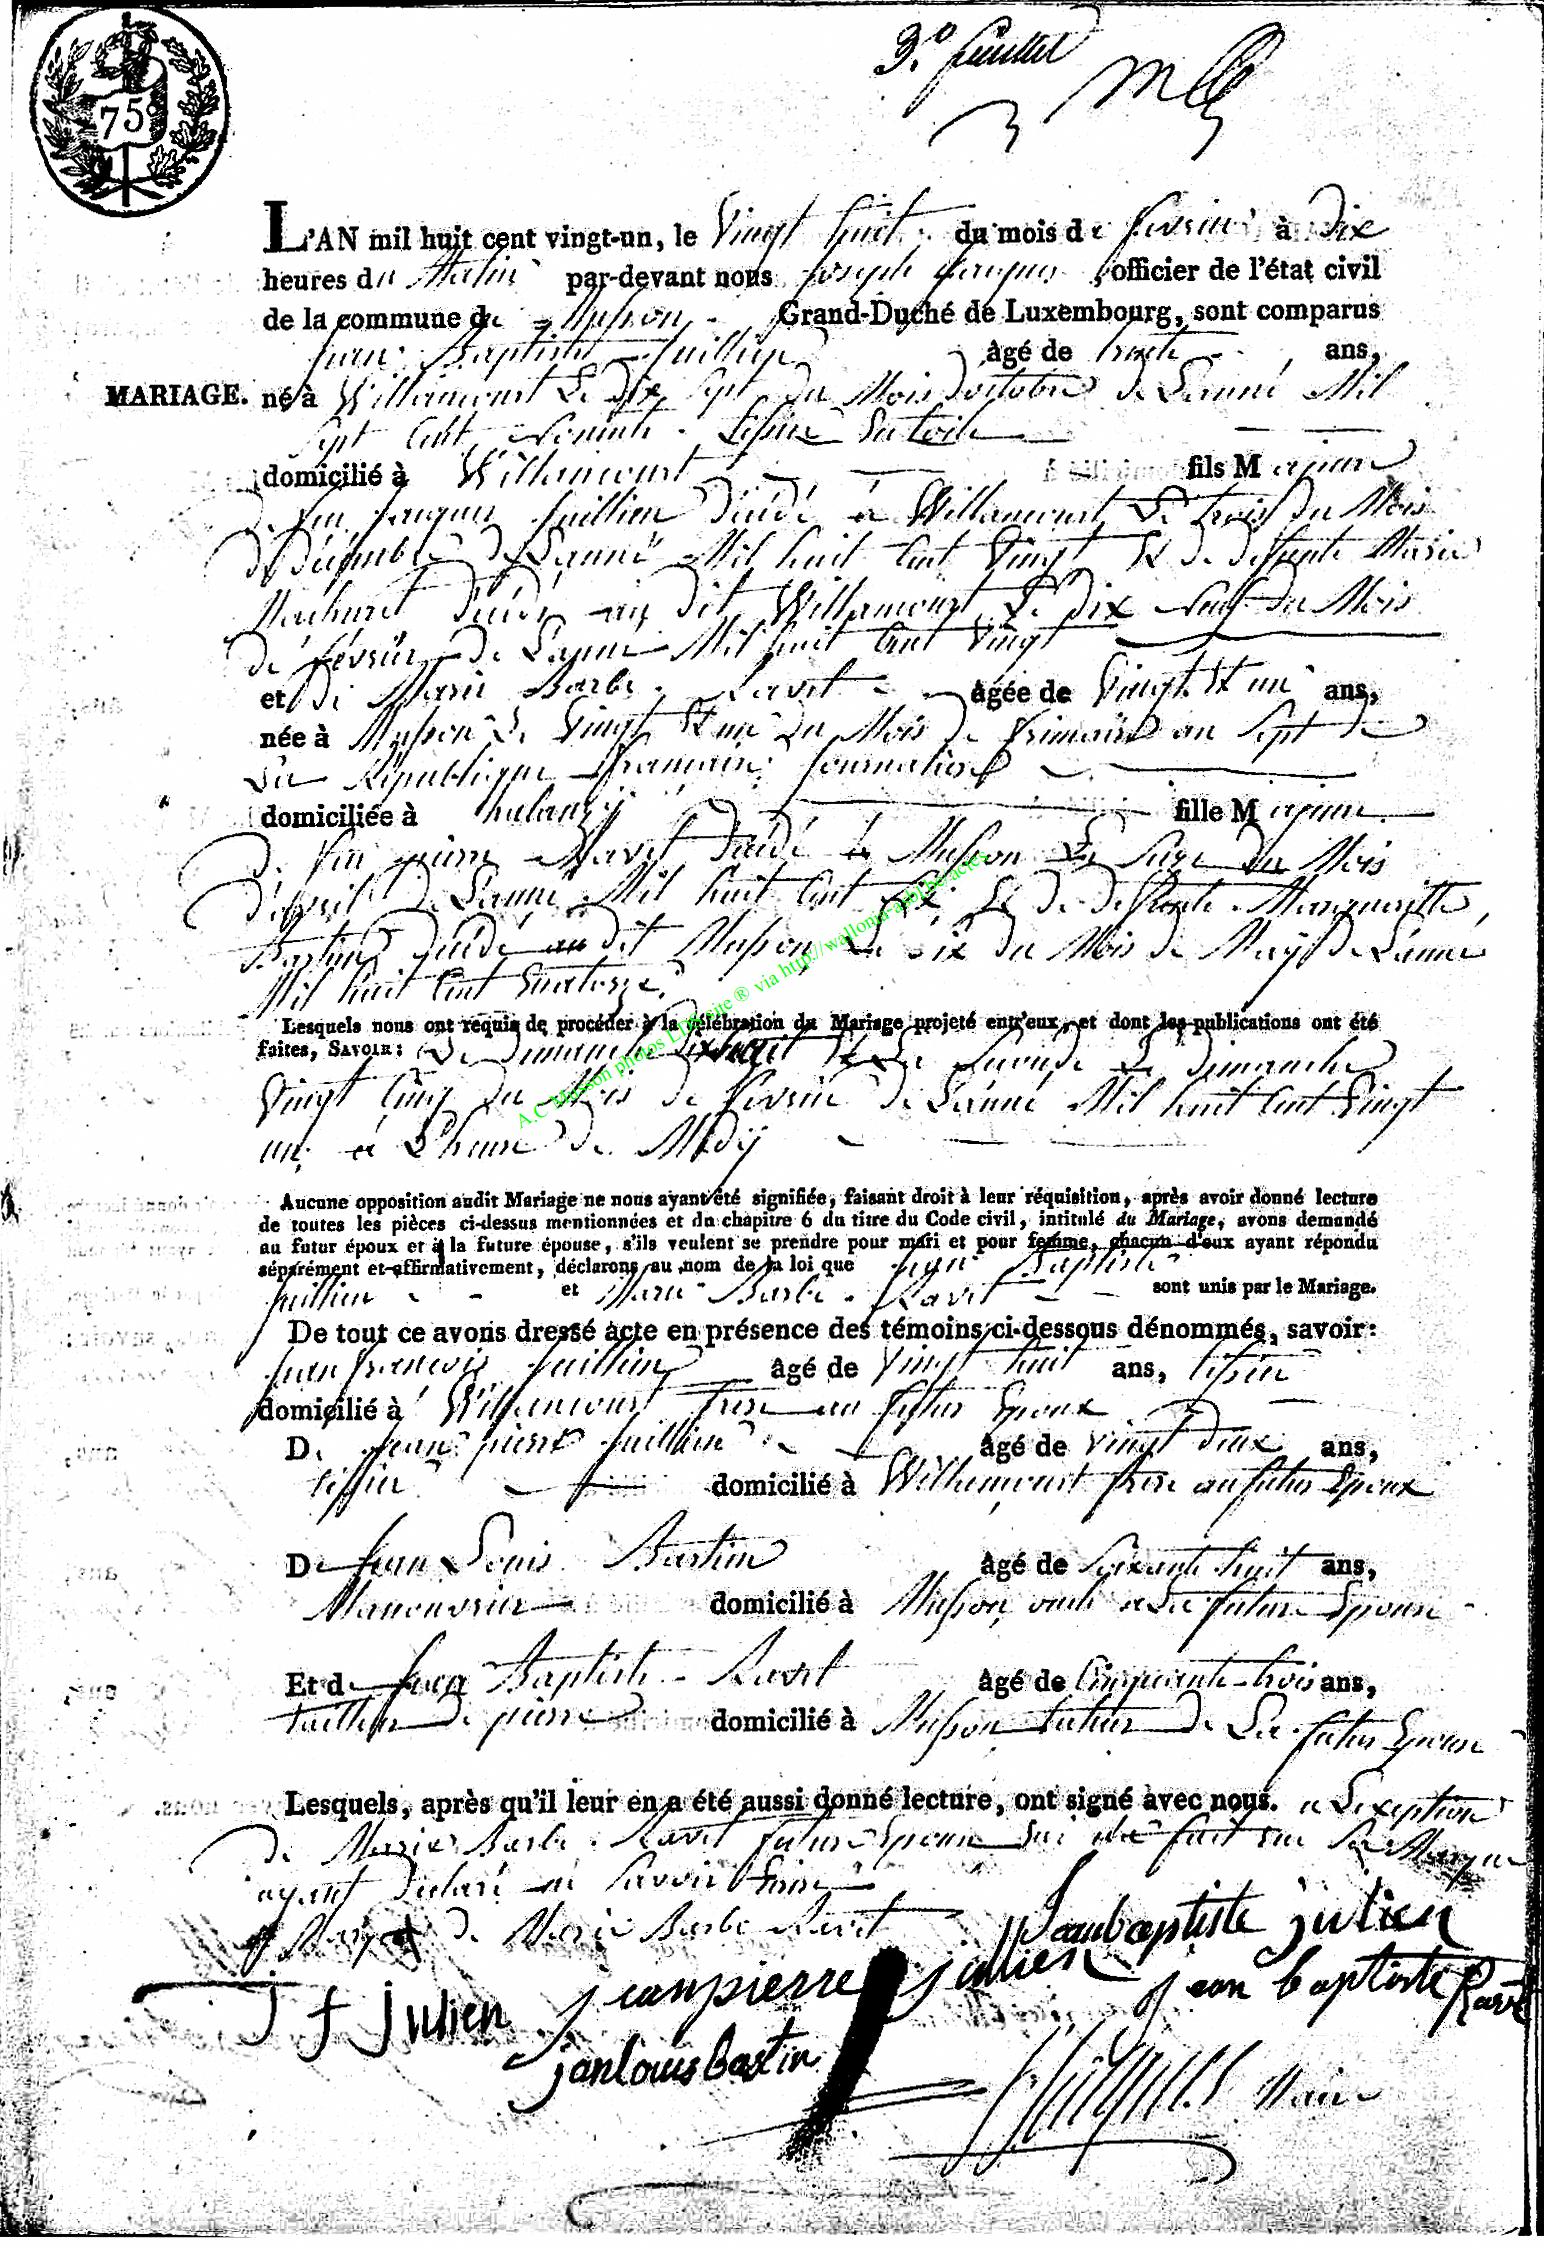 75
3e feuillet
L'AN mil huit cent vingt-un, le Vingt huit du mois de fevrier à dix
heures du Matin par-devant nous Joseph Jacques officier de l'état civil
de la commune de Musson Grand-Duché de Luxembourg, sont comparus
Jean Baptiste Juillien âgé de trente ans,
MARIAGE. né à Willancourt Le dix sept du Mois d'octobre de L'anné Mil
Sept Cent Nonante. tissier En toile
domicilié à Willancourt fils Majeur
de feu Jacques Juillien décédé à Willancourt Le trois du Mois
de décembre de L'anné Mil huit Cent Vingt Et de deffunte Marie
Machuret décédé au dit Willancourt Le dix neuf du Mois
de février de L'anné Mil huit Cent Vingt
et de Marie Barbe Ravet âgée de Vingt Et un ans,
née à Musson Le Vingt Et un du Mois de frimaire an Sept de
La République francaise journaliere
domiciliée à halanzÿ fille Majeure
de feu pierre Ravet décédé à Musson Le Seize du Mois
d'avril de L'anné Mil huit Cent Six Et de deffunte Margueritte
Bastin décédé au dit Musson Le Six du Mois de Maÿ de L'anné
Mil huit Cent Quatorze
Lesquels nous ont requis de procéder à la célébration du Mariage projeté entr'eux, et dont les publications ont été
faites, SAVOIR: Le Dimanche dix huit Et La Seconde Le dimanche
Vingt Cinq du Mois de fevrier de L'anné Mil huit Cent Vingt
un, à L'heure de Midÿ
Aucune opposition audit Mariage ne nous ayant été signifiée, faisant droit à leur réquisition, après avoir donné lecture
de toutes les pièces ci-dessus mentionnées et du chapitre 6 du titre du Code civil, intitulé du Mariage, avons demandé
au futur époux et à la future épouse, s'ils veulent se prendre pour mari et pour femme, chacun d'eux ayant répondu
séparément et affirmativement, déclarons au nom de la loi que Jean Baptiste
Juillien et Marie Barbe Ravet sont unis par le Mariage.
De tout ce avons dressé acte en présence des témoins ci-dessous dénommés, savoir:
Jean francois Juillien âgé de Vingt huit ans, tissier
domicilié à Willancourt frere au futur Epoux
De Jean pierre Juillien âgé de Vingt deux ans,
tissier domicilié à Willancourt frere au futur Epoux
De Jean Louis Bastin âgé de Soixante huit ans,
Manouvrier domicilié à Musson, oncle à La future Epouse
Et de Jean Baptiste Ravet âgé de Cinquante trois ans,
tailleur de pierre domicilié à Musson tuteur de La future Epouse
Lesquels, après qu'il leur en a été aussi donné lecture, ont signé avec nous. a L'exeption
de Marie Barbe Ravet future Epouse qui a fait sa Marque
ayant declaré ne Savoir Ecrire
Marque de Marie Barbe Ravet
Jeanbaptiste julien
J f julien
jeanpierre jullien
jean baptiste Ravet
janlouisbastin
J Jacques Maire
A.C Musson photos LDBsite ® via http://wallonia-asbl.be/actes